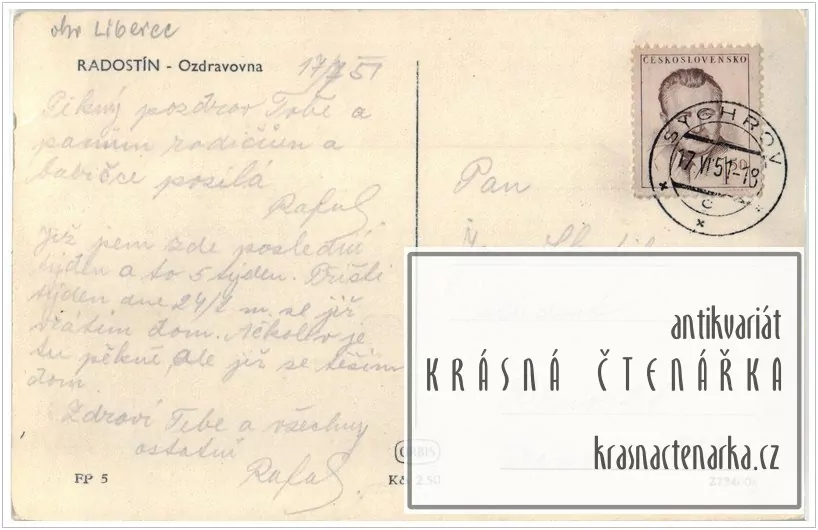 okr Liberec
RADOSTÍN - Ozdravovna
17/7 51
Pěkný pozdrav Tobě a
panům rodičům a
babičce posílá
Rafal
Již jsem zde poslední
týden a to 5 týden. Příští
týden dne 24/7 m. se již
vrátím dom. Několiv je
tu pěkně, ale již se těším
dom
Zdraví Tebe a všechny
ostatní
Rafal
FP 5
ORBIS
Kčs 2.50
ČESKOSLOVENSKO
SYCHROV
17 VI 51-18
c
Pan
antikvariát
KRÁSNÁ ČTENÁŘKA
krasnactenarka.cz